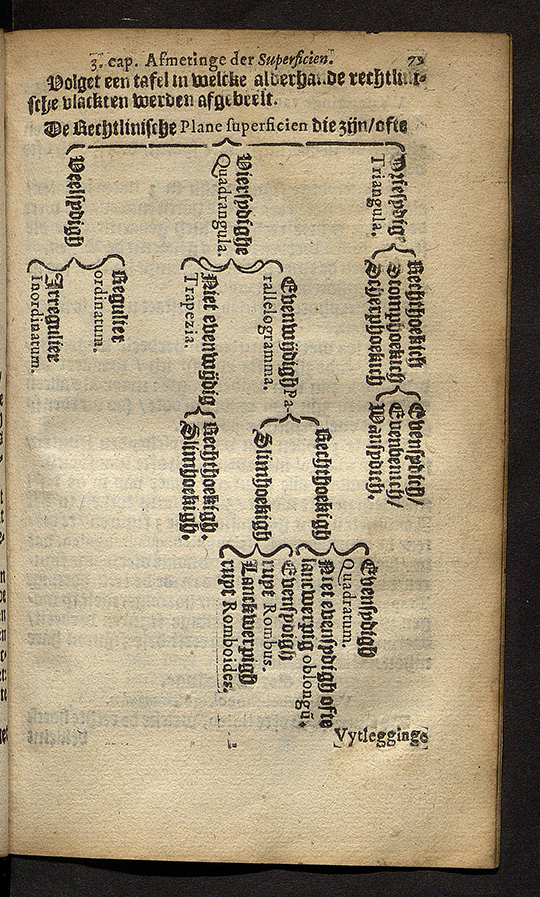 3. cap. Afmetinge der Superficien. 79
Volget een tafel in welcke alderhande rechtlini-
sche vlackten werden afgebeelt.
De Rechtlinische Plane superficien die zijn/ofte
Driesydig
Triangula.
Rechthoekich
Stomphoekich
Scherphoekich
Evensydich/
Evenbenich/
Wansydich.
Viersydighe
Quadrangula.
Evenwijdigh Pa-
rallelogramma.
Rechthoekigh
Evensydigh
Quadratum.
Niet evensydigh ofte
lanckwerpig oblongū.
Slimhoekigh
Evensydigh
rupt Rombus.
Lanckwerpigh
rupt Romboides.
Niet evenwijdig
Trapezia.
Rechthoekigh.
Slimhoekigh.
Veelsydigh
Regulier
ordinatum.
Irregulier
Inordinatum.
Vytlegginge